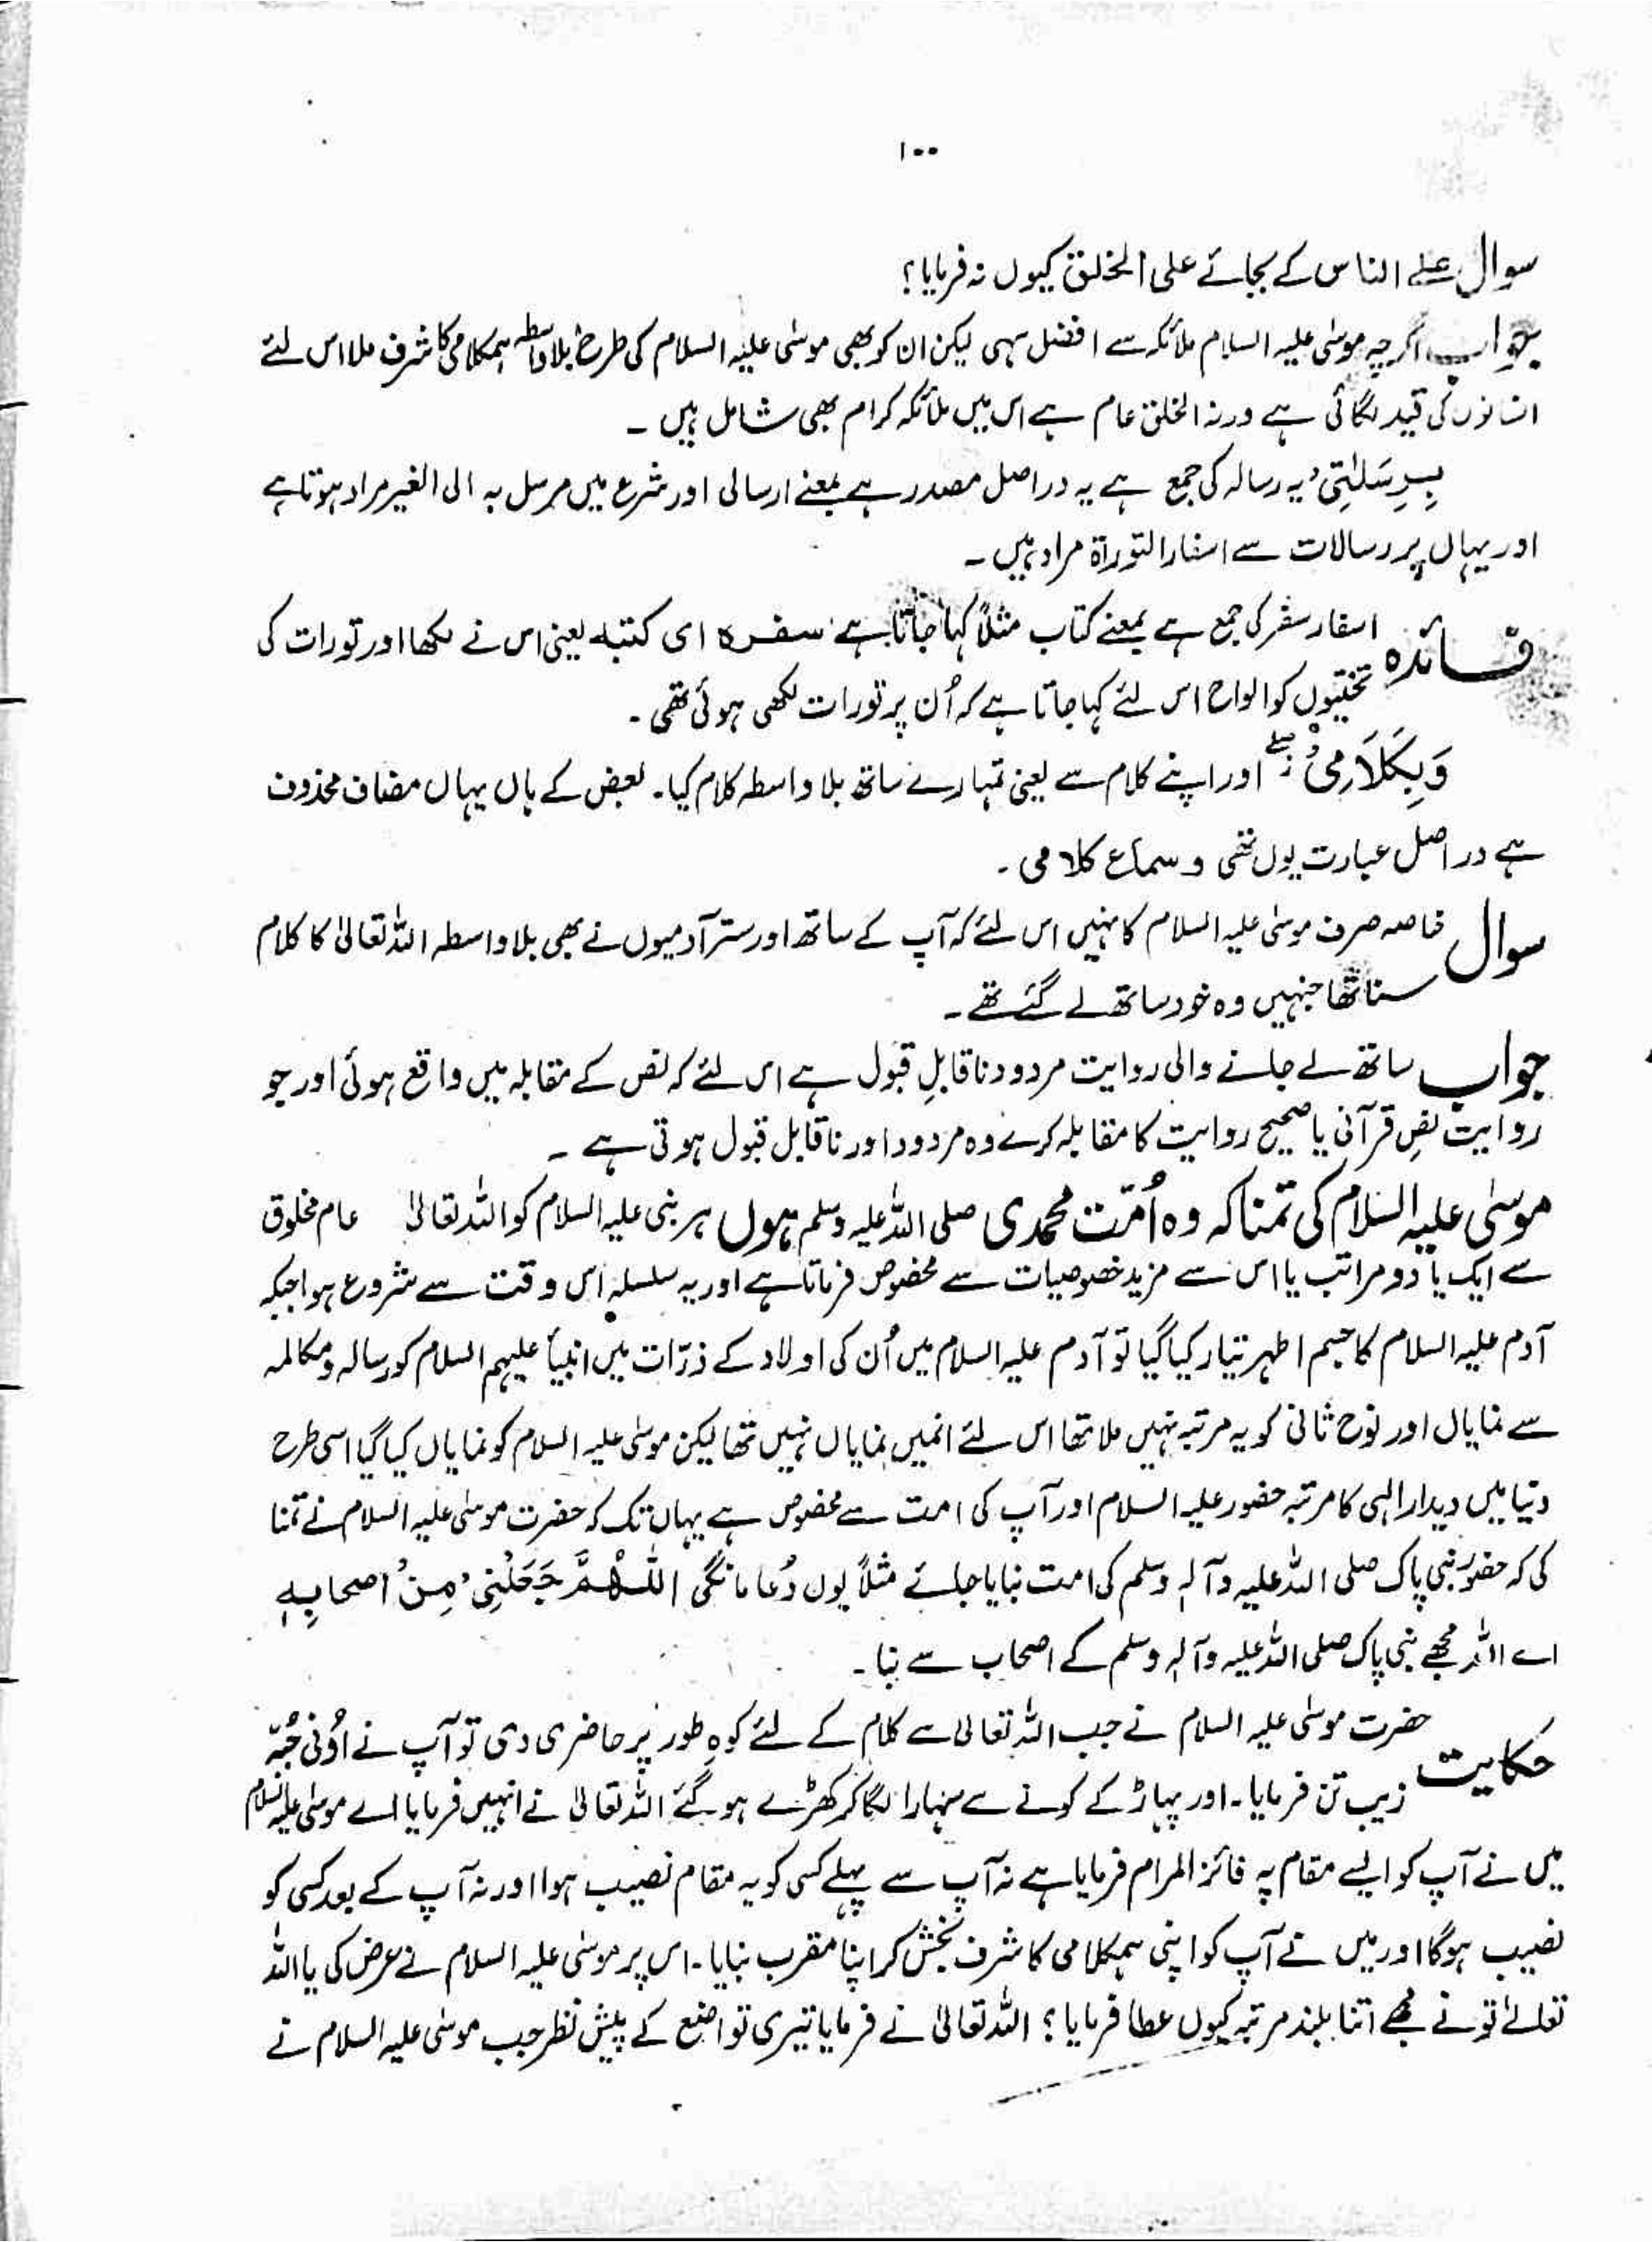 ۱۰۰
سوال علے الناس کے بجائے علی الخلق کیوں نہ فرمایا؟
جواب اگرچہ موسٰی علیہ السلام ملائکہ سے افضل سہی لیکن ان کو بھی موسٰی علیہ السلام کی طرح بلاواسطہ ہمکلامی کا شرف ملا اس لئے
انسانوں کی قید لگائی ہے ورنہ الخلق عام ہے اس میں ملائکہ کرام بھی شامل ہیں ۔
بِرِسٰلٰتِیْ یہ رسالہ کی جمع ہے یہ دراصل مصدر ہے بمعنے ارسالی اور شرع میں مرسل بہ الی الغیر مراد ہوتا ہے
اور یہاں پر رسالات سے اسفار التوراۃ مراد ہیں ۔
فائدہ اسفار سفر کی جمع ہے بمعنے کتاب مثلاً کہا جاتا ہے سفرہ ای کتبہ یعنی اس نے لکھا اور تورات کی
تختیوں کو الواح اس لئے کہا جاتا ہے کہ اُن پر تورات لکھی ہوئی تھی ۔
وَبِکَلَامِیْ ۖ اور اپنے کلام سے یعنی تمہارے ساتھ بلا واسطہ کلام کیا۔ بعض کے ہاں یہاں مضاف محذوف
ہے دراصل عبارت یوں تھی و سماع کلامی ۔
سوال خاصہ صرف موسٰی علیہ السلام کا نہیں اس لئے کہ آپ کے ساتھ اور ستر آدمیوں نے بھی بلا واسطہ اللہ تعالیٰ کا کلام
سنا تھا جنہیں وہ خود ساتھ لے گئے تھے ۔
جواب ساتھ لے جانے والی روایت مردود ناقابلِ قبول ہے اس لئے کہ نص کے مقابلہ میں واقع ہوئی اور جو
روایت نصِ قرآنی یا صحیح روایت کا مقابلہ کرے وہ مردود اور ناقابل قبول ہوتی ہے ۔
موسٰی علیہ السّلام کی تمنا کہ وہ اُمّت محمدی صلی اللہ علیہ وسلم ہوں ہر نبی علیہ السلام کو اللہ تعالیٰ عام مخلوق
سے ایک یا دو مراتب یا اس سے مزید خصوصیات سے مخصوص فرماتا ہے اور یہ سلسلہ اس وقت سے شروع ہوا جبکہ
آدم علیہ السلام کا جسم اطہر تیار کیا گیا تو آدم علیہ السلام میں اُن کی اولاد کے ذرّات میں انبیأ علیہم السلام کو رسالہ و مکالمہ
سے نمایاں اور نوح ثانی کو یہ مرتبہ نہیں ملا تھا اس لئے انمیں نمایاں نہیں تھا لیکن موسٰی علیہ السلام کو نمایاں کیا گیا اسی طرح
دنیا میں دیدار الٰہی کا مرتبہ حضور علیہ السلام اور آپ کی امت سے مخصوص ہے یہاں تک کہ حضرت موسٰی علیہ السلام نے تمنا
کی کہ حضور نبی پاک صلی اللہ علیہ وآلہٖ وسلم کی امت بنایا جائے مثلاً یوں دُعا مانگی اَللّٰہُمَّ جَعَلْنِیْ مِنْ اصحابِہٖ
اے اللہ مجھے نبی پاک صلی اللہ علیہ وآلہٖ وسلم کے اصحاب سے بنا ۔
حکایت حضرت موسٰی علیہ السلام نے جب اللہ تعالیٰ سے کلام کے لئے کوہِ طور پر حاضری دی تو آپ نے اُونی جُبّہ
زیب تن فرمایا ۔ اور پہاڑ کے کونے سے سہارا لگا کر کھڑے ہو گئے اللہ تعالیٰ نے انہیں فرمایا اے موسٰی علیہ السلام
میں نے آپ کو ایسے مقام پہ فائز المرام فرمایا ہے نہ آپ سے پہلے کسی کو یہ مقام نصیب ہوا اور نہ آپ کے بعد کسی کو
نصیب ہوگا اور میں نے آپ کو اپنی ہمکلامی کا شرف بخش کر اپنا مقرب بنایا ۔ اس پر موسٰی علیہ السلام نے عرض کی یا اللہ
تعالےٰ تو نے مجھے اتنا بلند مرتبہ کیوں عطا فرمایا ؟ اللہ تعالیٰ نے فرمایا تیری تواضع کے پیش نظر جب موسٰی علیہ السلام نے